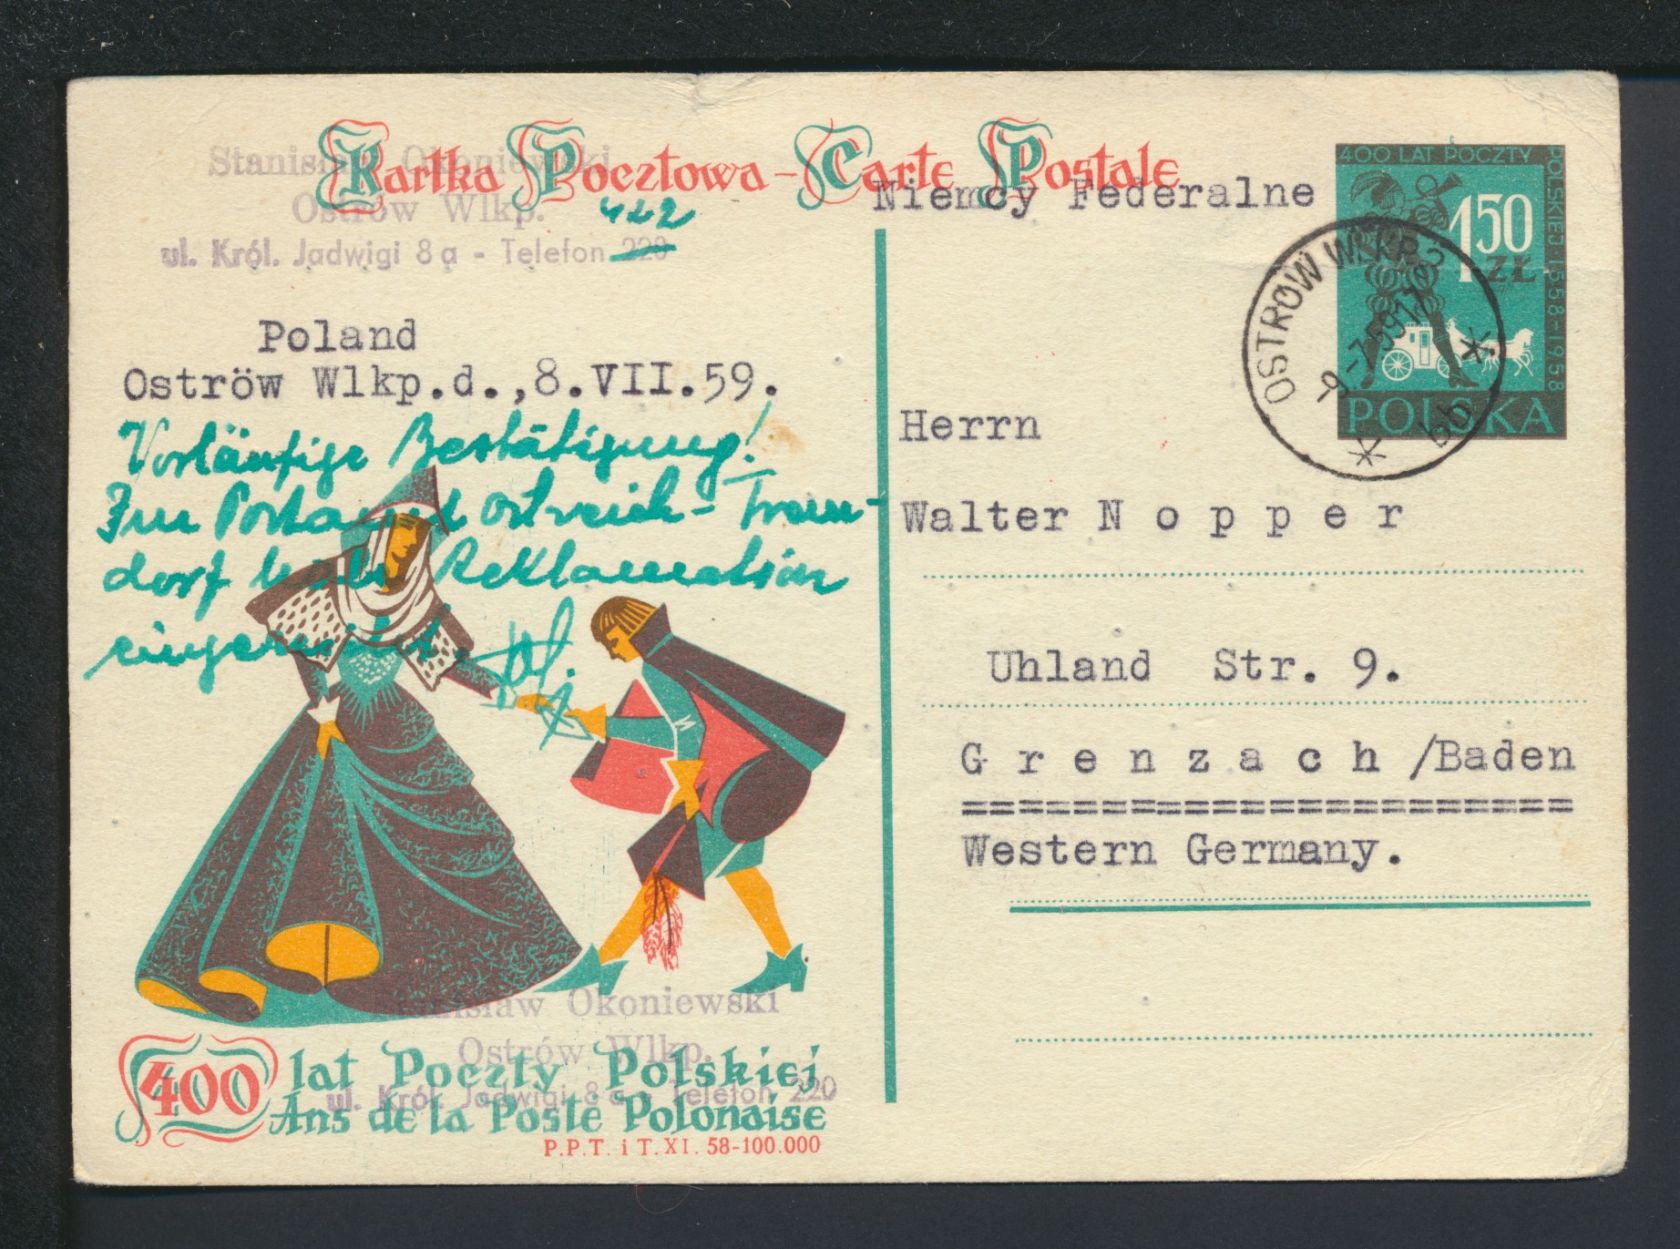 Kartka Pocztowa - Carte Postale
Stanisław Okoniewski
Ostrów Wlkp.
422
ul. Król. Jadwigi 8a - Telefon 220
Niemcy Federalne
400 LAT POCZTY POLSKIEJ 1558-1958
1,50 ZŁ
POLSKA
OSTRÓW WLKP. 3
-9.-7.59.17
bb
Poland
Oströw Wlkp.d.,8.VII.59.
Vorläufige Bestätigung!
Zur Postamt
Reklamation
Herrn
Walter N o p p e r
Uhland Str. 9.
G r e n z a c h /Baden
======================
Western Germany.
Stanisław Okoniewski
Ostrów Wlkp.
ul. Król. Jadwigi 8a - Telefon 220
400 lat Poczty Polskiej
Ans de la Poste Polonaise
P.P.T. i T. XI. 58-100.000